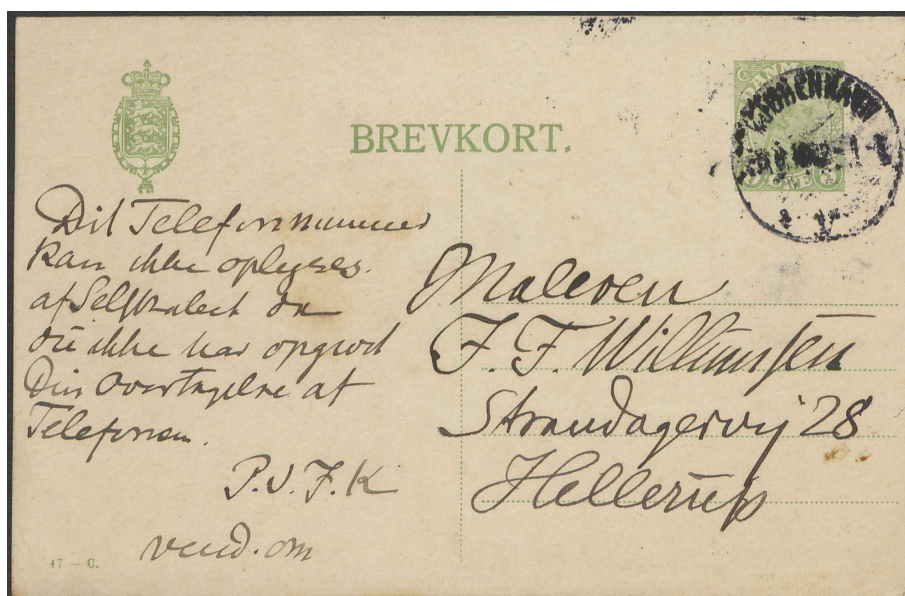 BREVKORT.
DANMARK
KJØBENHAVN
Dit Telefonnummer
kan ikke oplyses.
af Selskabet da
du ikke har opgivet
Din Overtagelse af
Telefonen.
P.V.J.K
vend. om
Maleren
J. F. Willumsen
Strandagervej 28
Hellerup
17 – C.